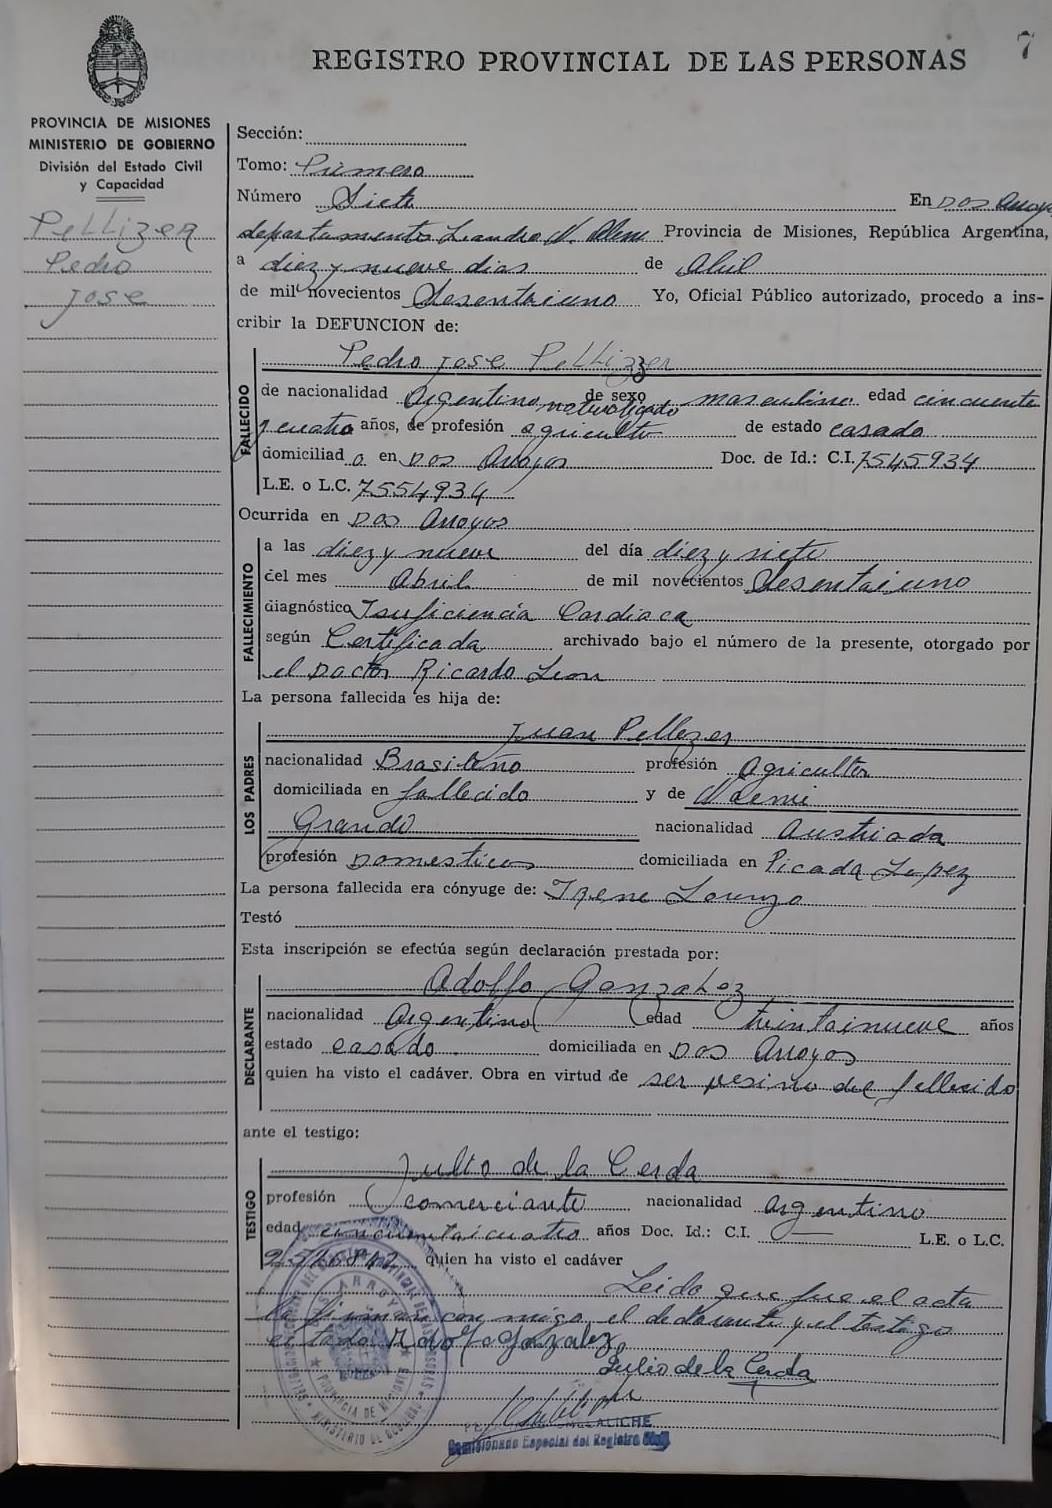 7
REGISTRO PROVINCIAL DE LAS PERSONAS
PROVINCIA DE MISIONES
MINISTERIO DE GOBIERNO
División del Estado Civil
y Capacidad
Pellizer
Pedro
Jose
Sección:
Tomo: Primero
Número Siete En Dos Arroyo
departamento Leandro N. Alem Provincia de Misiones, República Argentina,
a diez y nueve dias de Abril
de mil novecientos sesentaiuno Yo, Oficial Público autorizado, procedo a ins-
cribir la DEFUNCION de:
Pedro Jose Pellizzer
FALLECIDO
de nacionalidad Argentino naturalizado de sexo masculino edad cincuenta
y cuatro años, de profesión agricultor de estado casado
domiciliad o en Dos Arroyos Doc. de Id.: C.I. 7545934
L.E. o L.C. 7554934
Ocurrida en Dos Arroyos
FALLECIMIENTO
a las diez y nueve del día diez y siete
del mes Abril de mil novecientos sesentaiuno
diagnóstico Isuficiencia Cardiaca
según Certificada archivado bajo el número de la presente, otorgado por
el Doctor Ricardo Leon
La persona fallecida es hija de:
LOS PADRES
Juan Pellezer
nacionalidad Brasileño profesión Agricultor
domiciliada en fallecido y de Noemi
Grando nacionalidad Austriada
profesión Domesticos domiciliada en Picada Lopez
La persona fallecida era cónyuge de: Irene Lorenzo
Testó
Esta inscripción se efectúa según declaración prestada por:
DECLARANTE
Adolfo Gonzalez
nacionalidad Argentino edad treintainueve años
estado casado domiciliada en Dos Arroyos
quien ha visto el cadáver. Obra en virtud de ser vesino del fallecido
ante el testigo:
TESTIGO
Julio de la Cerda
profesión comerciante nacionalidad argentino
edad cincuentaicuatro años Doc. Id.: C.I. — L.E. o L.C.
quien ha visto el cadáver
Leido que fue el acta
la firman con migo el declarante y el testigo
Adolfo Gonzalez
Julio de la Cerda
Comisionado Especial del Registro Civil